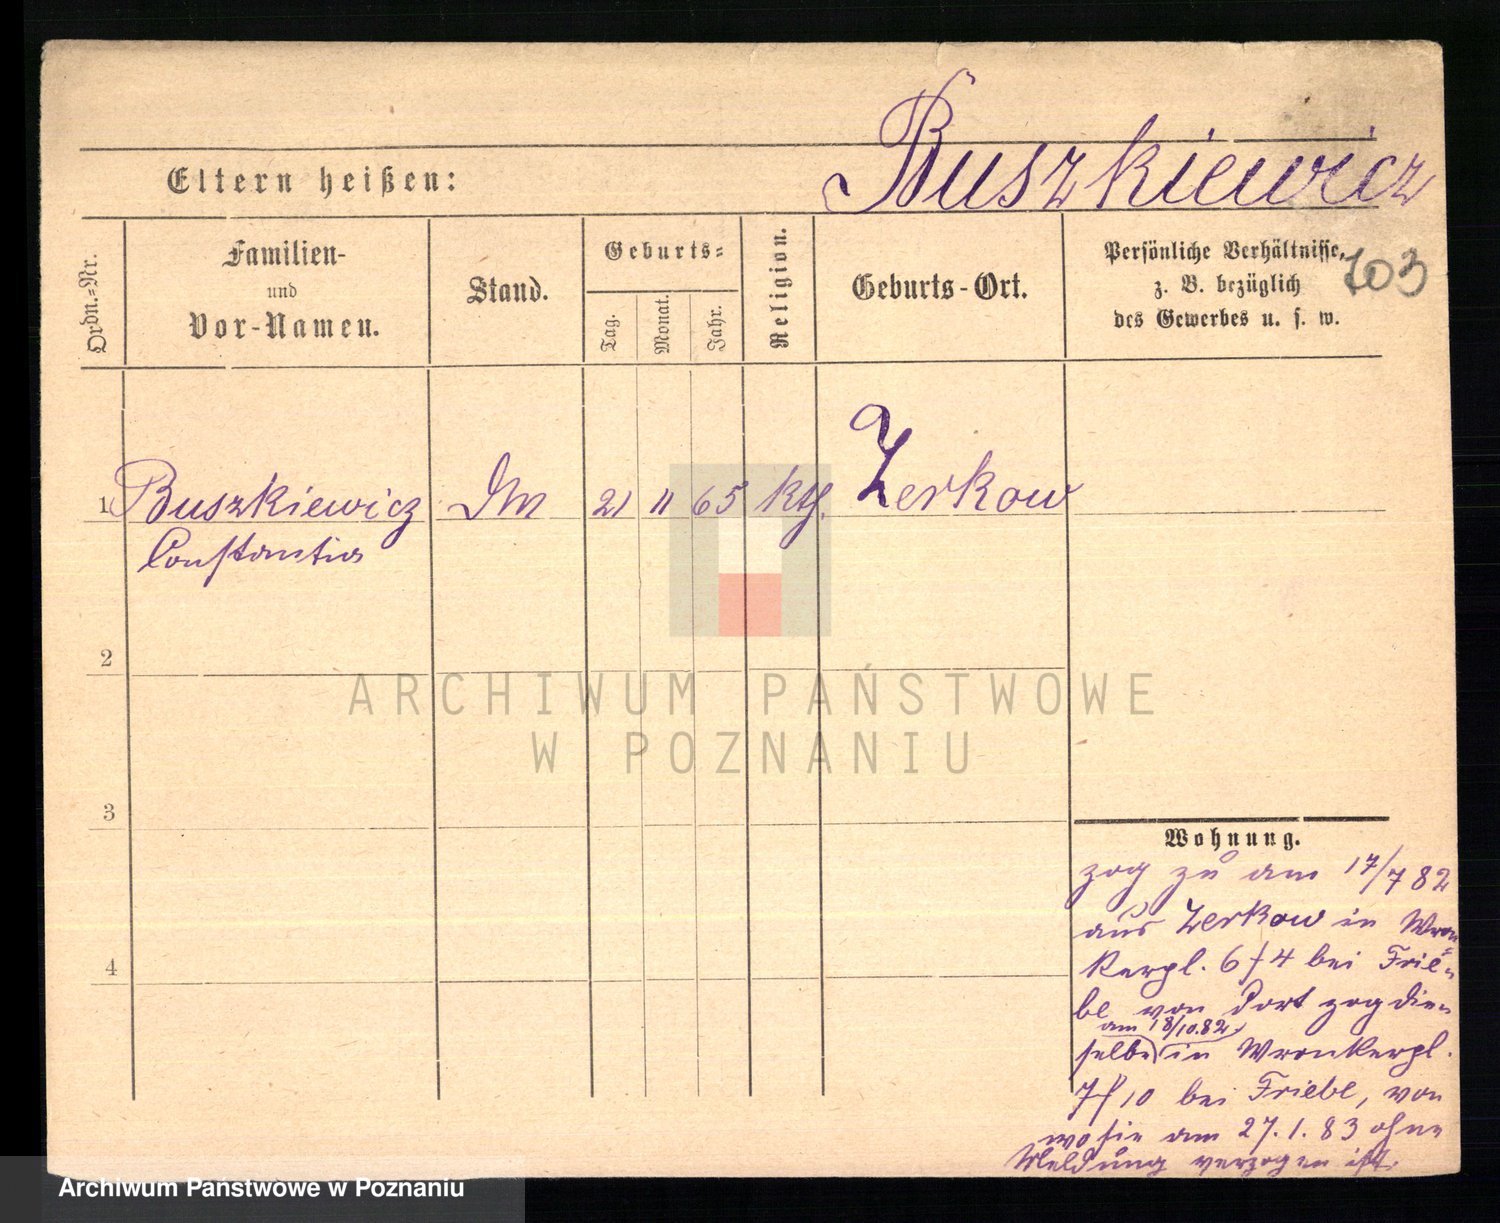 Buszkiewicz
Eltern heißen:
Ordn.-Nr.
Familien-
und
Vor-Namen.
Stand.
Geburts-
Tag.
Monat.
Jahr.
Religion.
Geburts-Ort.
Persönliche Verhältnisse,
z. B. bezüglich
des Gewerbes u. s. w.
703
1 Buszkiewicz 21 11 65 kth. Zerkow
Constantia
2
ARCHIWUM PAŃSTWOWE
W POZNANIU
3
Wohnung.
zog zu am 17/7 82
aus Zerkow in Wron-
kerpl. 6/4 bei Frie-
be von dort zog die-
am 18/10.82
selbe in Wronkerpl.
7/10 bei Friebe, von
wo sie am 27.1.83 ohne
Meldung verzogen ist.
4
Archiwum Państwowe w Poznaniu